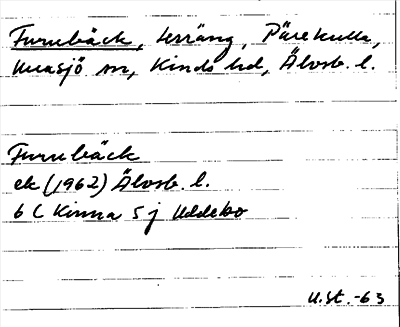 Furubäck, terräng, Pärekulla,
Ljusjö sn, Kinds hd, Älvsb. l.
Furubäck
ek (1962) Älvsb. l.
6 C Kinna 5 j Uddebo
U.St. -63